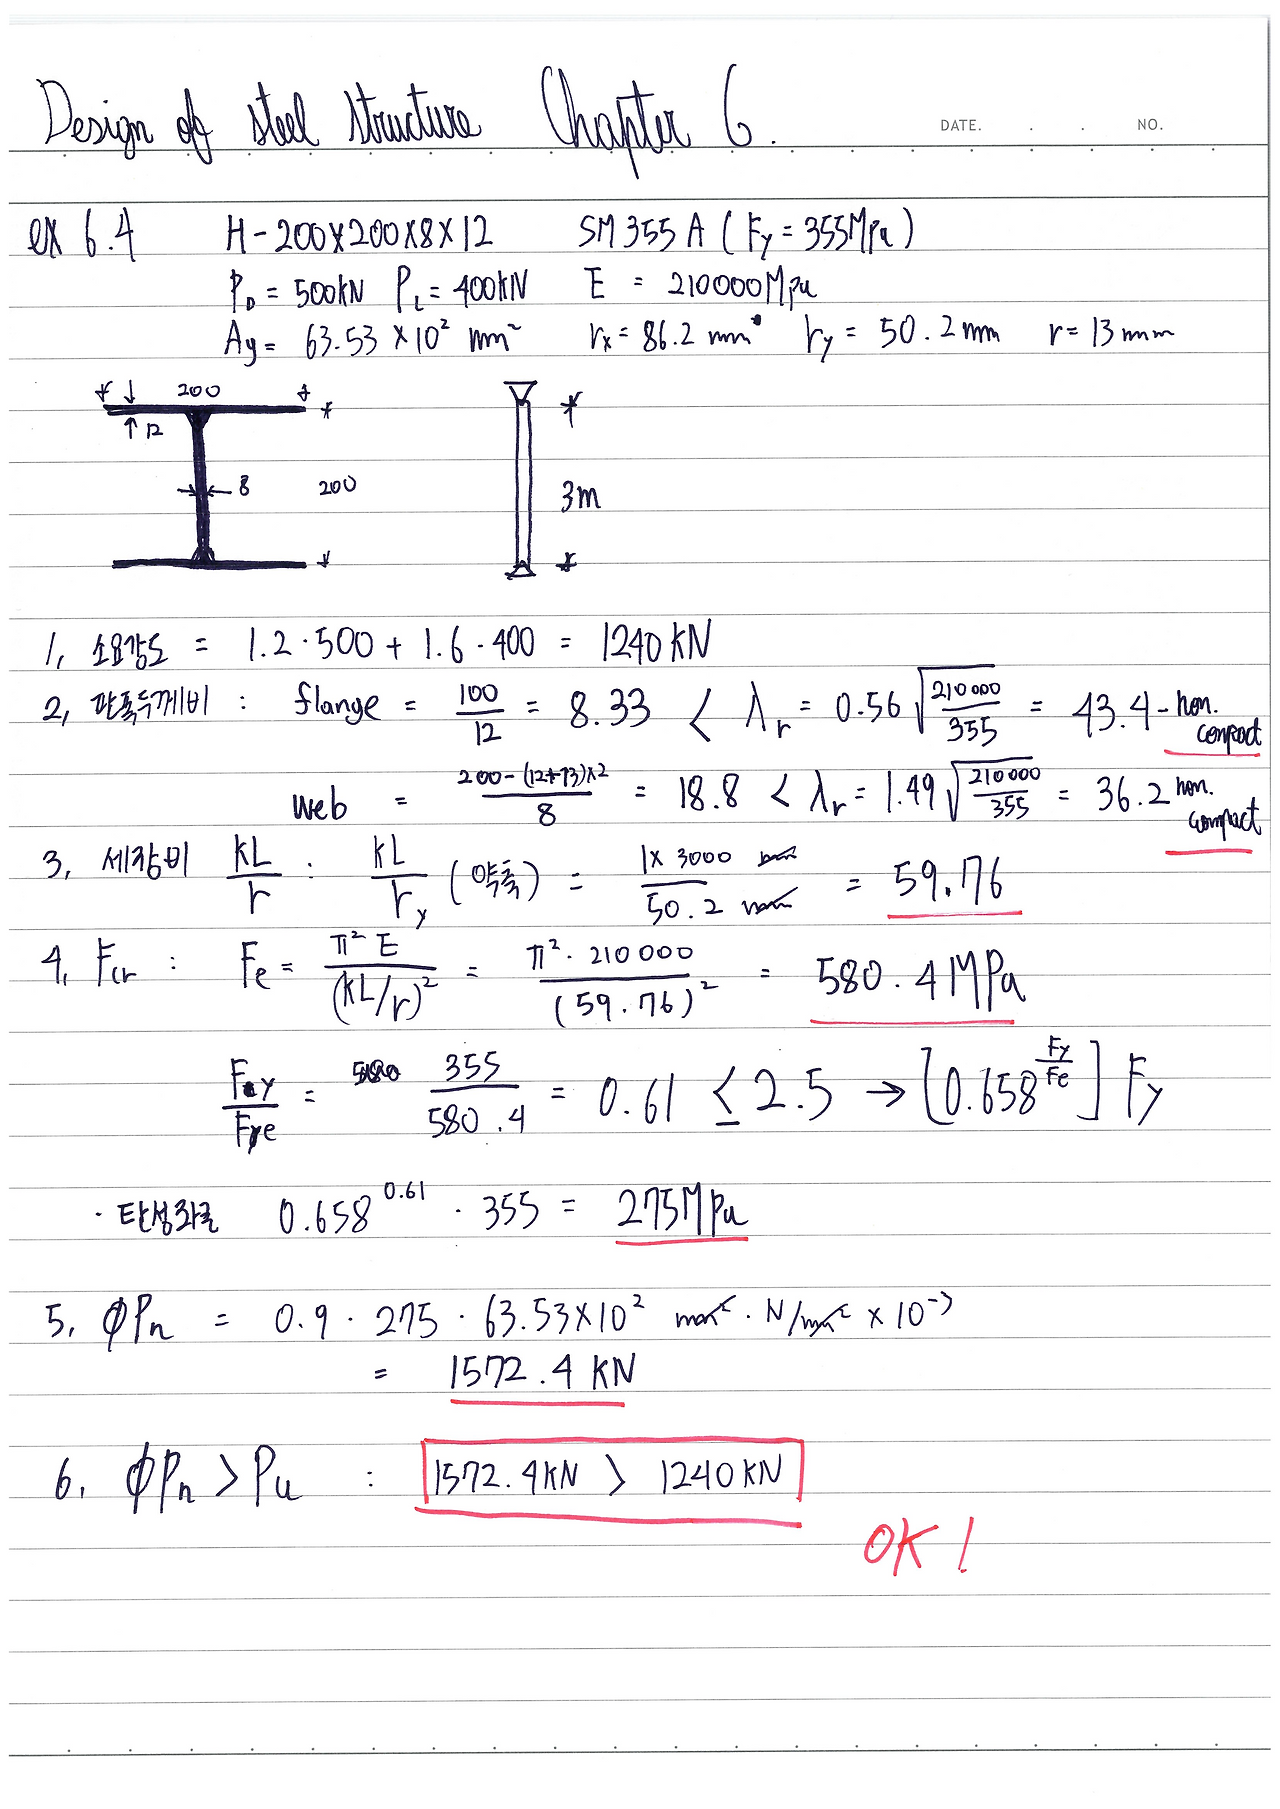 Design of steel structure Chapter 6.
DATE. . . NO.
ex 6.4 H-200×200×8×12 SM355A (Fy = 355MPa)
P_D = 500kN P_L = 400kN E = 210000MPa
Ag = 63.53 × 10² mm² rx = 86.2 mm ry = 50.2mm r = 13mm
200
12
8 200
3m
1, 소요강도 = 1.2·500 + 1.6·400 = 1240kN
2, 판폭두께비 : flange = 100/12 = 8.33 < λr = 0.56√(210000/355) = 43.4 - non. compact
web = (200-(12+13)×2)/8 = 18.8 < λr = 1.49√(210000/355) = 36.2 non. compact
3, 세장비 kL/r : kL/ry (약축) = (1×3000 mm)/(50.2 mm) = 59.76
4, Fcr : Fe = π²E/(kL/r)² = π²·210000/(59.76)² = 580.4MPa
Fy/Fe = 355/580.4 = 0.61 ≤ 2.5 → [0.658^(Fy/Fe)] Fy
· 탄성좌굴 0.658^0.61 · 355 = 275MPa
5, φPn = 0.9 · 275 · 63.53×10² mm² · N/mm² × 10⁻³
= 1572.4 kN
6. φPn > Pu : 1572.4kN > 1240kN
OK!